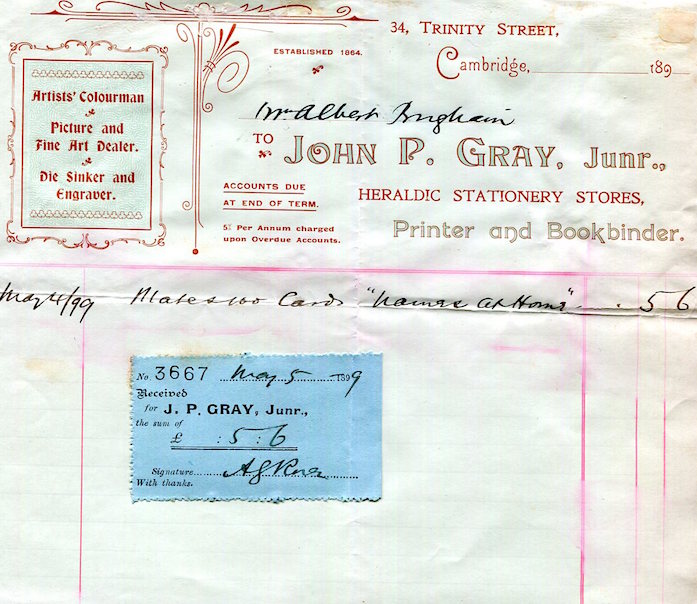 34, TRINITY STREET,
ESTABLISHED 1864.
Cambridge, 189
Artists' Colourman
Picture and
Fine Art Dealer.
Die Sinker and
Engraver.
Albert
TO JOHN P. GRAY, Junr.,
ACCOUNTS DUE
AT END OF TERM.
HERALDIC STATIONERY STORES,
5% Per Annum charged
upon Overdue Accounts.
Printer and Bookbinder.
May 4/99 Plate & 100 Cards "Names At Home" 5 6
No. 3667 May 5 1899
Received
for J. P. GRAY, Junr.,
the sum of
£ : 5 : 6
Signature
With thanks.